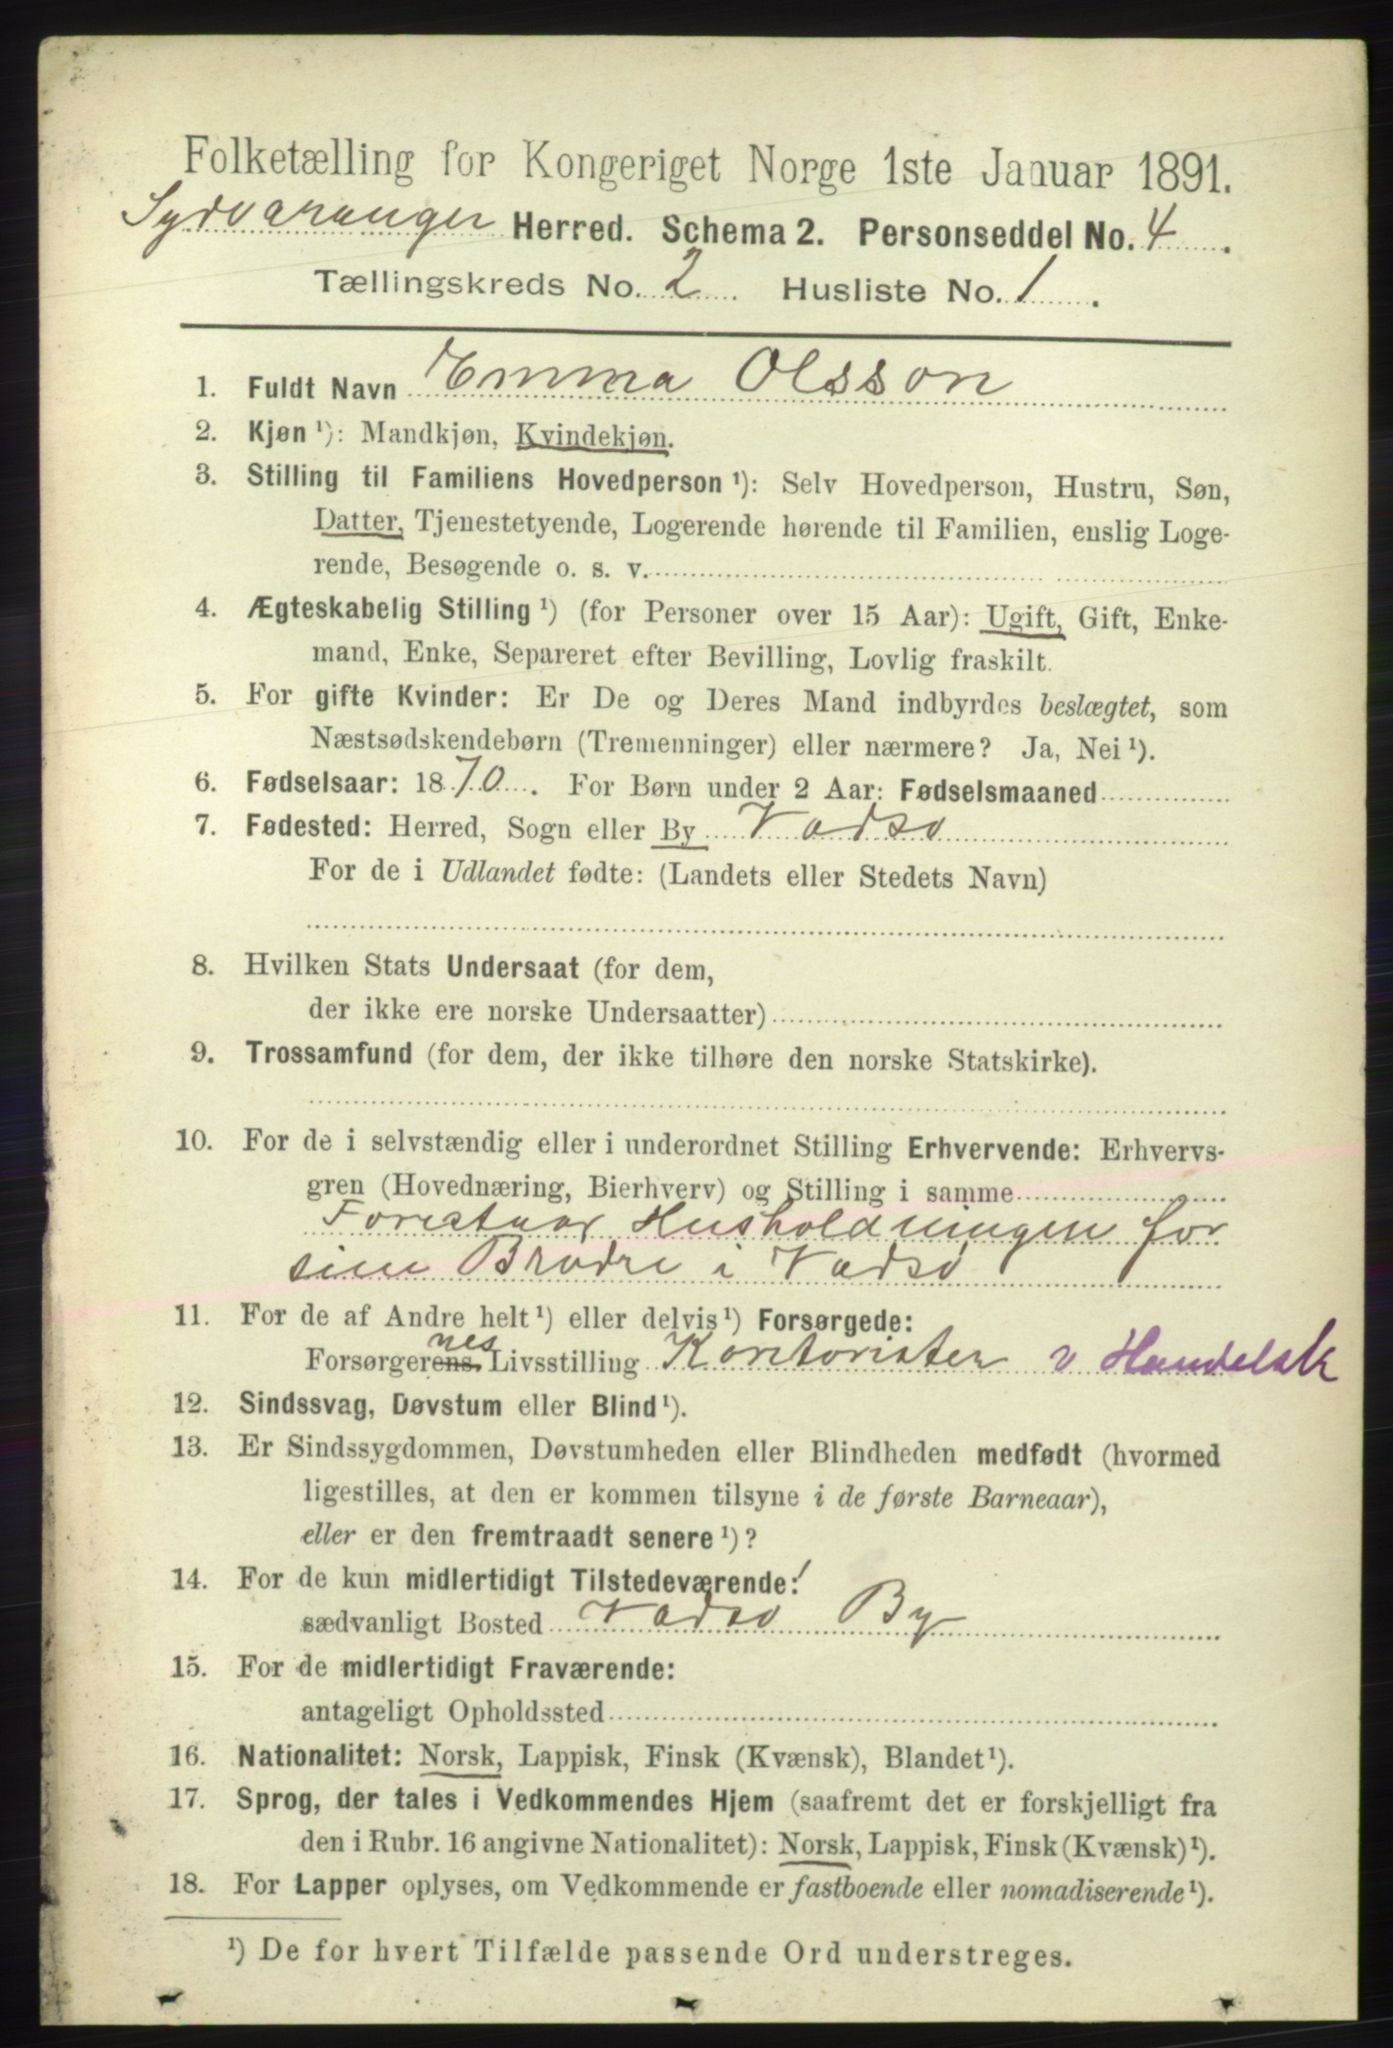 Folketælling for Kongeriget Norge 1ste Januar 1891.
Sydvaranger Herred. Schema 2. Personseddel No. 4.
Tællingskreds No. 2. Husliste No. 1.
1. Fuldt Navn Emma Olsson
2. Kjøn ¹): Mandkjøn, Kvindekjøn.
3. Stilling til Familiens Hovedperson ¹): Selv Hovedperson, Hustru, Søn,
Datter, Tjenestetyende, Logerende hørende til Familien, enslig Loge-
rende, Besøgende o. s. v.
4. Ægteskabelig Stilling ¹) (for Personer over 15 Aar): Ugift, Gift, Enke-
mand, Enke, Separeret efter Bevilling, Lovlig fraskilt.
5. For gifte Kvinder: Er De og Deres Mand indbyrdes beslægtet, som
Næstsødskendebørn (Tremenninger) eller nærmere? Ja, Nei ¹).
6. Fødselsaar: 1870. For Børn under 2 Aar: Fødselsmaaned
7. Fødested: Herred, Sogn eller By Vadsø
For de i Udlandet fødte: (Landets eller Stedets Navn)
8. Hvilken Stats Undersaat (for dem,
der ikke ere norske Undersaatter)
9. Trossamfund (for dem, der ikke tilhøre den norske Statskirke).
10. For de i selvstændig eller i underordnet Stilling Erhvervende: Erhvervs-
gren (Hovednæring, Bierhverv) og Stilling i samme
Forestaar Husholdningen for
sine Brødre i Vadsø
11. For de af Andre helt ¹) eller delvis ¹) Forsørgede:
Forsørgerens nes Livsstilling Kontorister v Handelsk
12. Sindssvag, Døvstum eller Blind ¹).
13. Er Sindssygdommen, Døvstumheden eller Blindheden medfødt (hvormed
ligestilles, at den er kommen tilsyne i de første Barneaar),
eller er den fremtraadt senere ¹)?
14. For de kun midlertidigt Tilstedeværende:
sædvanligt Bosted Vadsø By
15. For de midlertidigt Fraværende:
antageligt Opholdssted
16. Nationalitet: Norsk, Lappisk, Finsk (Kvænsk), Blandet ¹).
17. Sprog, der tales i Vedkommendes Hjem (saafremt det er forskjelligt fra
den i Rubr. 16 angivne Nationalitet): Norsk, Lappisk, Finsk (Kvænsk) ¹).
18. For Lapper oplyses, om Vedkommende er fastboende eller nomadiserende ¹).
¹) De for hvert Tilfælde passende Ord understreges.